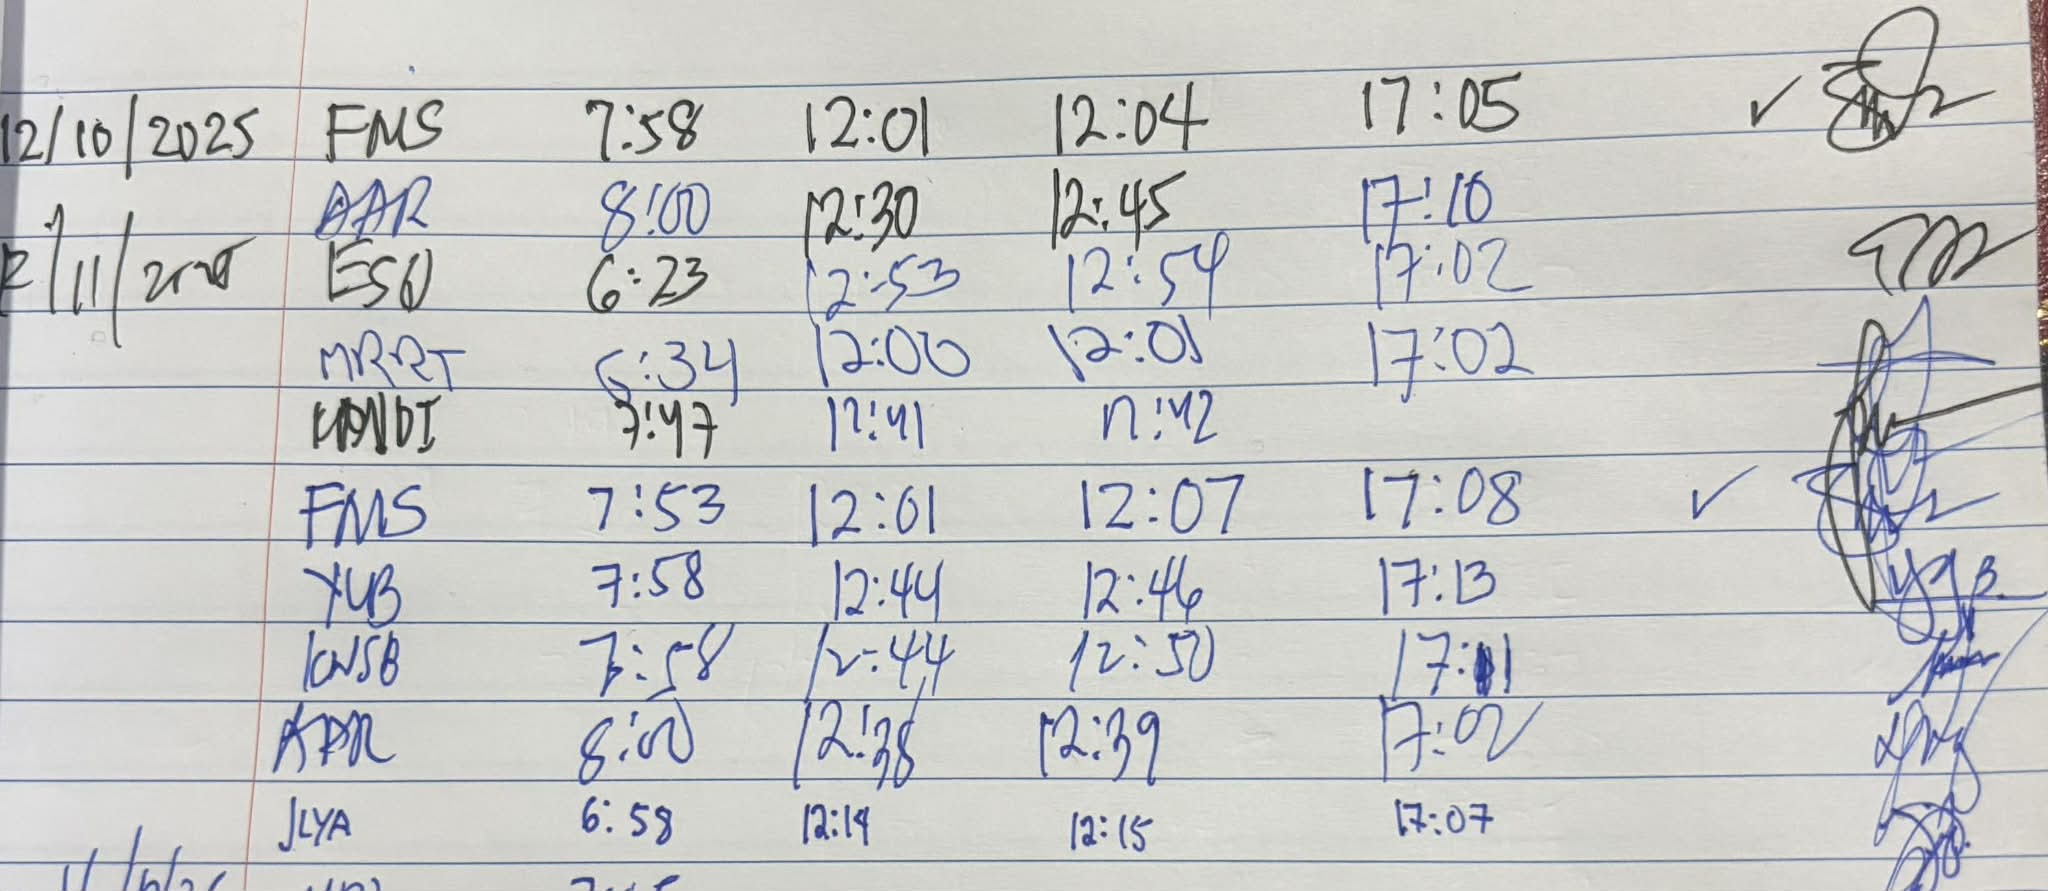 12/10/2025 FMS 7:58 12:01 12:04 17:05 ✓
AAR 8:00 12:30 12:45 17:10
/11/2025 ESO 6:23 12:53 12:54 17:02
MRRT 6:34 12:00 12:01 17:02
7:47 12:41 12:42
FMS 7:53 12:01 12:07 17:08 ✓
YUB 7:58 12:44 12:46 17:13
KNSB 7:58 12:44 12:50 17:11
AAR 8:00 12:38 12:39 17:02
JLYA 6:58 12:14 12:15 17:07